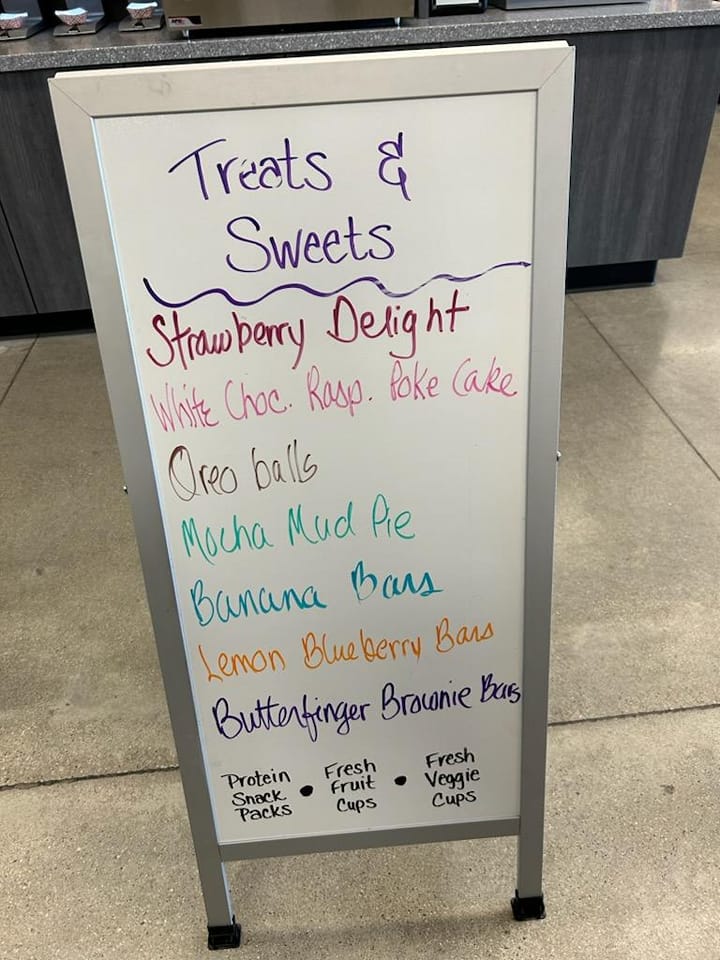 Treats &
Sweets
Strawberry Delight
White Choc. Rasp. Poke Cake
Oreo balls
Mocha Mud Pie
Banana Bars
Lemon Blueberry Bars
Butterfinger Brownie Bars
Protein Snack Packs • Fresh Fruit Cups • Fresh Veggie Cups